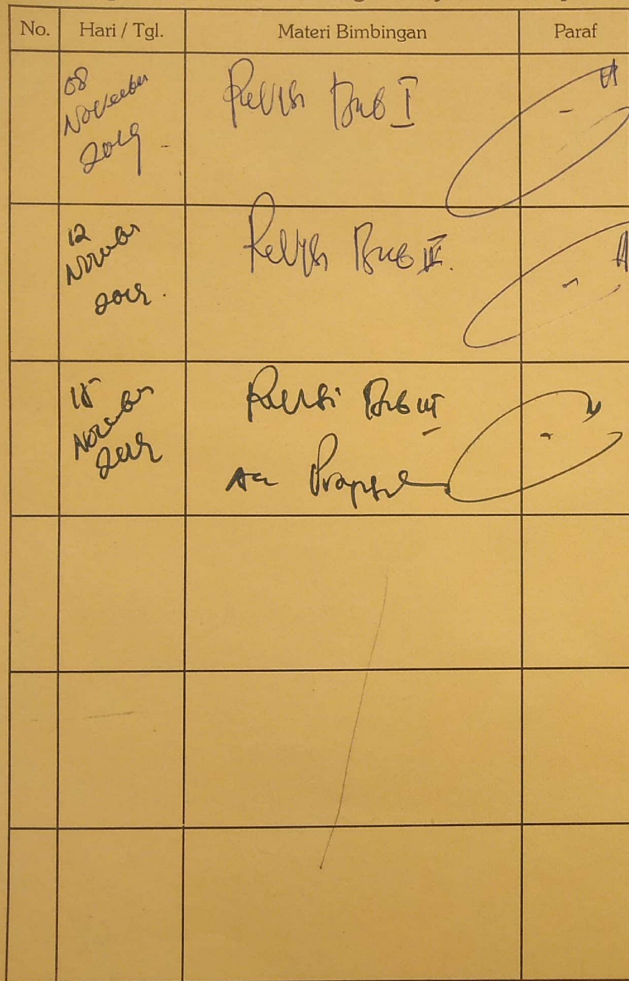 No. Hari / Tgl. Materi Bimbingan Paraf
08
November
2019
Revisi Bab I
12
November
2019
Revisi Bab II
15
November
2019
Revisi Bab III
Acc Proposal